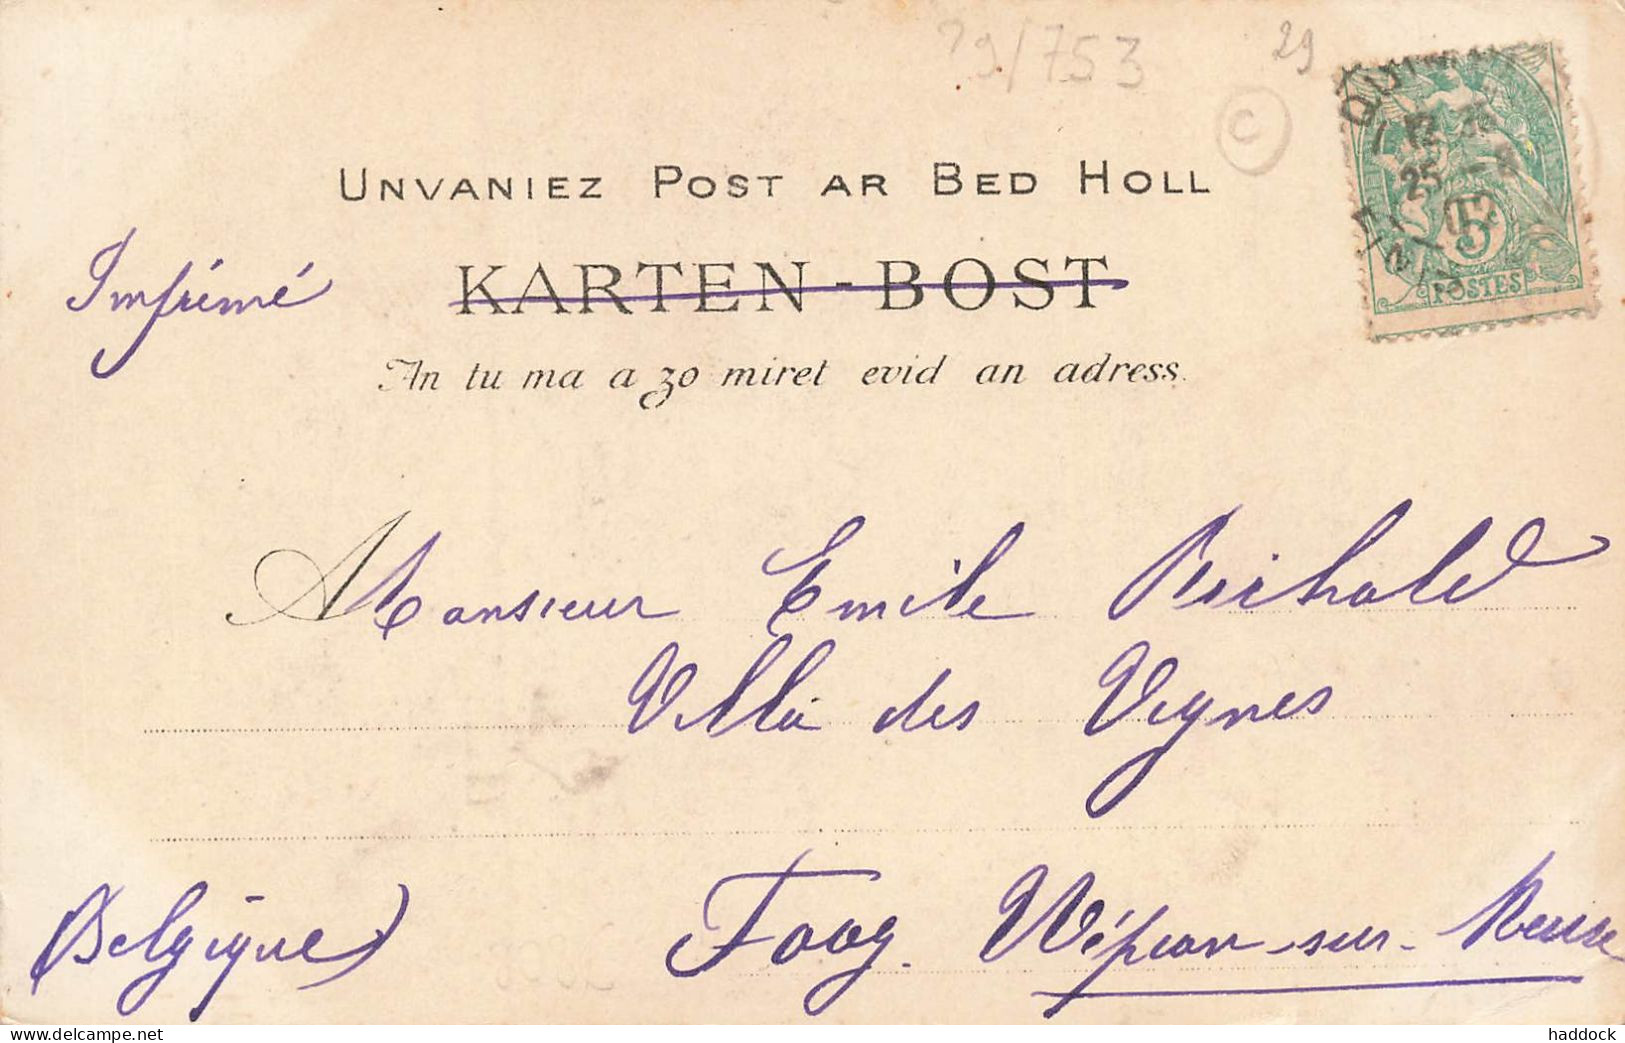 29/753
29
C
UNVANIEZ POST AR BED HOLL
Imprimé
KARTEN-BOST
An tu ma a zo miret evid an adress.
QUIMPER
12
25 - 8
02
FINISTERE
5
POSTES
A Monsieur Emile
Villa des Vignes
Tooz. Wépion-sur-Meuse
(Belgique)
haddock